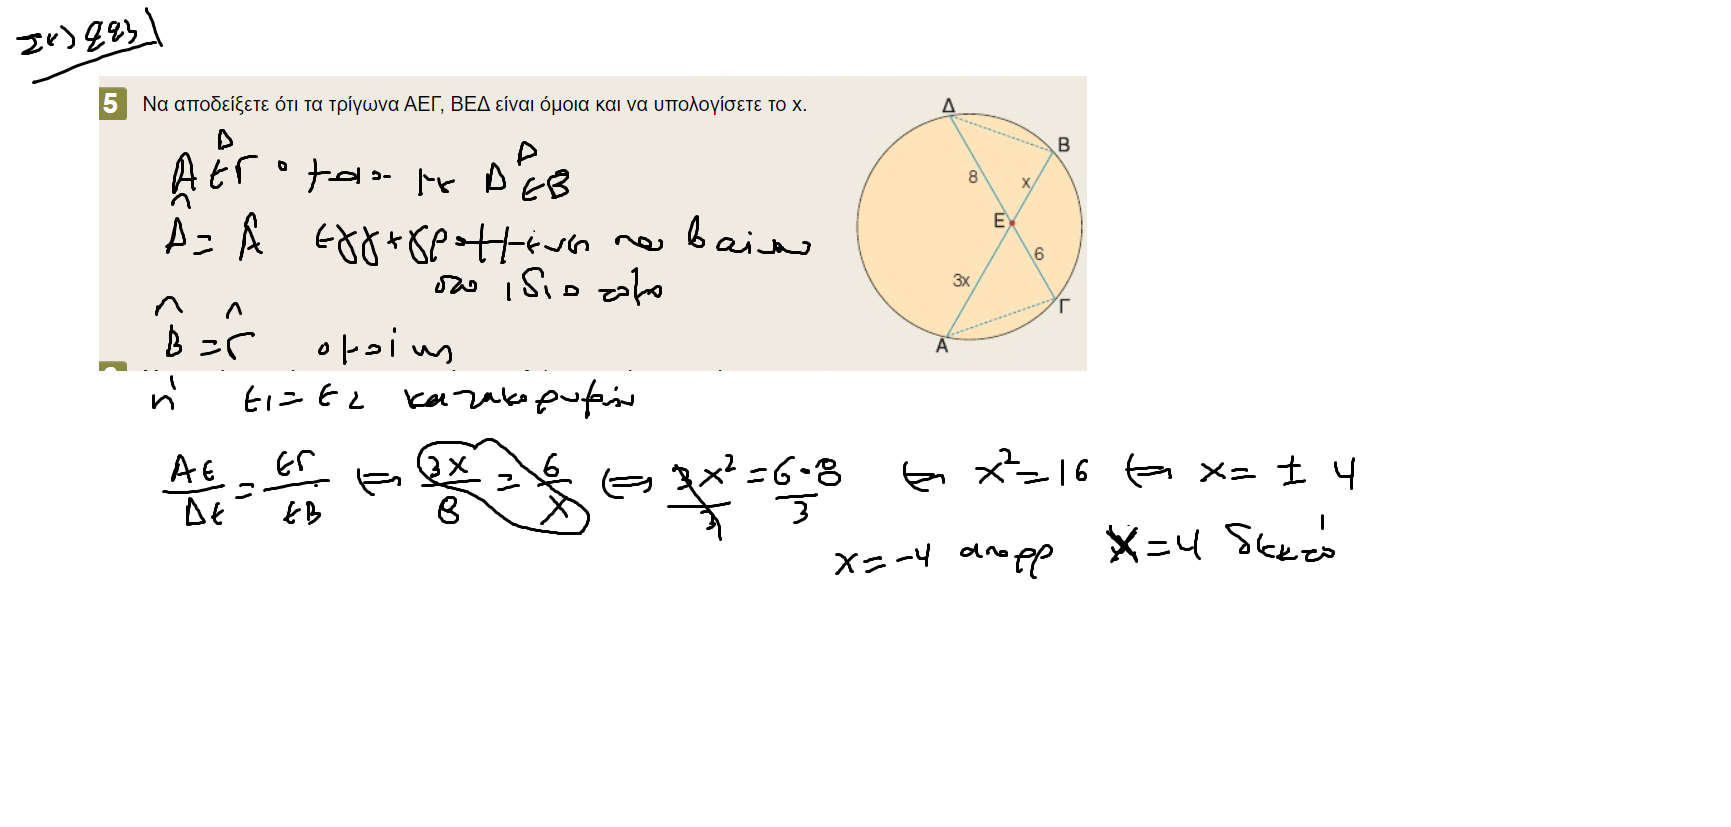 5 Να αποδείξετε ότι τα τρίγωνα ΑΕΓ, ΒΕΔ είναι όμοια και να υπολογίσετε το x.
Δ
Β
8
x
Ε
6
3x
Γ
Α
ΑΕΓ όμοιο με ΔΕΒ
Δ = Α εγγεγραμμένη που βαίνουν
στο ίδιο τόξο
Β = Γ ομοίως
ή Ε1 = Ε2 κατακορυφήν
ΑΕ/ΔΕ = ΕΓ/ΕΒ ⇔ 3x/8 = 6/x ⇔ 3x²/3 = 6·8/3 ⇔ x² = 16 ⇔ x = ± 4
x = -4 απορρ x = 4 δεκτό